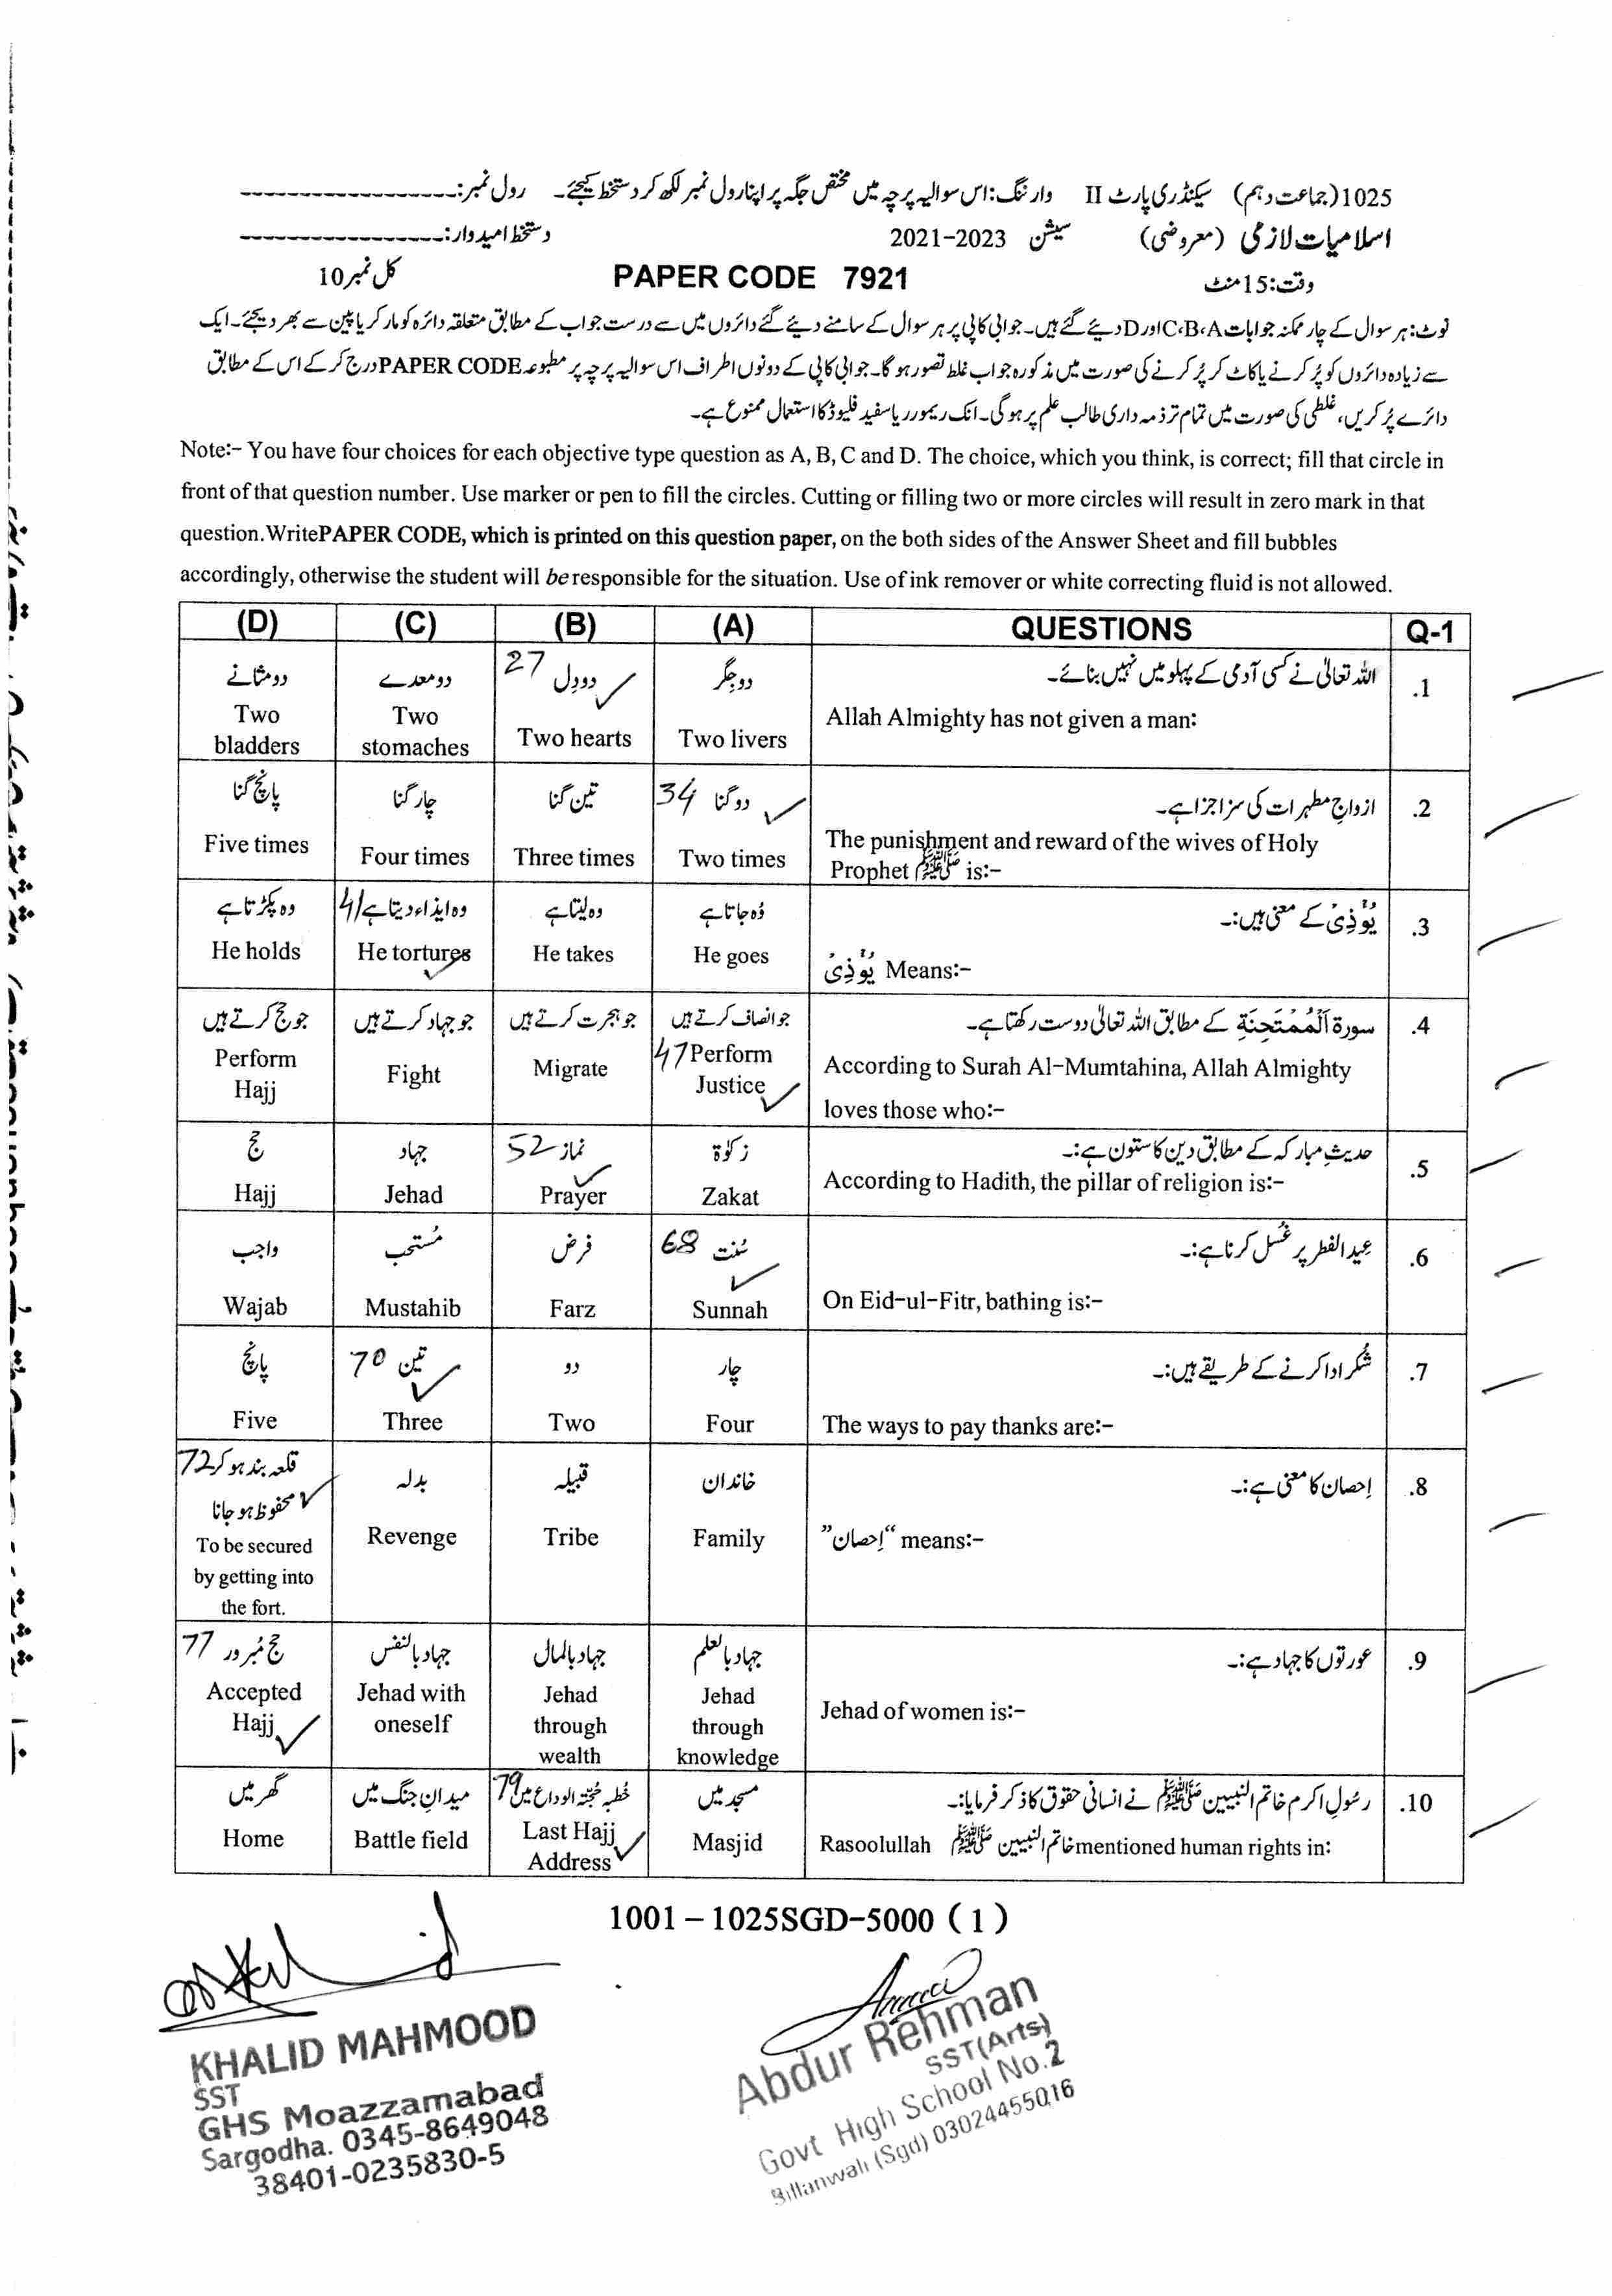 1025(جماعت دہم) سیکنڈری پارٹ II وارننگ: اس سوالیہ پرچہ میں مختص جگہ پر اپنا رول نمبر لکھ کر دستخط کیجئے۔ رول نمبر:------------------
اسلامیات لازمی (معروضی) سیشن 2021-2023 دستخط امیدوار:------------------
وقت: 15 منٹ PAPER CODE 7921 کل نمبر 10
نوٹ: ہر سوال کے چار ممکنہ جوابات C،B،A اور D دیئے گئے ہیں۔ جوابی کاپی پر ہر سوال کے سامنے دیئے گئے دائروں میں سے درست جواب کے مطابق متعلقہ دائرہ کو مارکر یا پین سے بھر دیجئے۔ ایک
سے زیادہ دائروں کو پُر کرنے یا کاٹ کر پُر کرنے کی صورت میں مذکورہ جواب غلط تصور ہو گا۔ جوابی کاپی کے دونوں اطراف اس سوالیہ پرچہ پر مطبوعہ PAPER CODE درج کر کے اس کے مطابق
دائرے پُر کریں، غلطی کی صورت میں تمام تر ذمہ داری طالب علم پر ہو گی۔ انک ریمورر یا سفید فلیوڈ کا استعمال ممنوع ہے۔
Note:- You have four choices for each objective type question as A, B, C and D. The choice, which you think, is correct; fill that circle in
front of that question number. Use marker or pen to fill the circles. Cutting or filling two or more circles will result in zero mark in that
question.WritePAPER CODE, which is printed on this question paper, on the both sides of the Answer Sheet and fill bubbles
accordingly, otherwise the student will be responsible for the situation. Use of ink remover or white correcting fluid is not allowed.
(D) (C) (B) (A) QUESTIONS Q-1
.1 اللہ تعالٰی نے کسی آدمی کے پہلو میں نہیں بنائے۔
Allah Almighty has not given a man:
دو جگر
Two livers
دو دِل 27
Two hearts
دو معدے
Two
stomaches
دو مثانے
Two
bladders
.2 ازواجِ مطہرات کی سزا جزا ہے۔
The punishment and reward of the wives of Holy
Prophet ﷺ is:-
دو گنا 34
Two times
تین گنا
Three times
چار گنا
Four times
پانچ گنا
Five times
.3 یُؤْذِیْ کے معنی ہیں:۔
یُؤْذِیْ Means:-
وُہ جاتا ہے
He goes
وہ لیتا ہے
He takes
وہ ایذاء دیتا ہے 41
He tortures
وہ پکڑتا ہے
He holds
.4 سورۃ اَلْمُمْتَحِنَةِ کے مطابق اللہ تعالٰی دوست رکھتا ہے۔
According to Surah Al-Mumtahina, Allah Almighty
loves those who:-
جو انصاف کرتے ہیں
47 Perform
Justice
جو ہجرت کرتے ہیں
Migrate
جو جہاد کرتے ہیں
Fight
جو حج کرتے ہیں
Perform
Hajj
.5 حدیثِ مبارکہ کے مطابق دین کا ستون ہے:۔
According to Hadith, the pillar of religion is:-
زکوٰۃ
Zakat
نماز 52
Prayer
جہاد
Jehad
حج
Hajj
.6 عِید الفطر پر غُسل کرنا ہے:۔
On Eid-ul-Fitr, bathing is:-
سُنت 68
Sunnah
فرض
Farz
مُستحب
Mustahib
واجب
Wajab
.7 شُکر ادا کرنے کے طریقے ہیں:۔
The ways to pay thanks are:-
چار
Four
دو
Two
تین 70
Three
پانچ
Five
.8 اِحصان کا معنی ہے:۔
”اِحصان“ means:-
خاندان
Family
قبیلہ
Tribe
بدلہ
Revenge
قلعہ بند ہو کر 72
محفوظ ہو جانا
To be secured
by getting into
the fort.
.9 عورتوں کا جہاد ہے:۔
Jehad of women is:-
جہاد بالعلم
Jehad
through
knowledge
جہاد بالمال
Jehad
through
wealth
جہاد بالنفس
Jehad with
oneself
حج مُبرور 77
Accepted
Hajj
.10 رسُولِ اکرم خاتم النبیین ﷺ نے انسانی حقوق کا ذکر فرمایا:۔
Rasoolullah خاتم النبیین ﷺ mentioned human rights in:
مسجد میں
Masjid
خُطبہ حُجتہ الوداع میں 79
Last Hajj
Address
میدانِ جنگ میں
Battle field
گھر میں
Home
1001 – 1025SGD-5000 ( 1 )
KHALID MAHMOOD
SST
GHS Moazzamabad
Sargodha. 0345-8649048
38401-0235830-5
Abdur Rehman
SST(Arts)
Govt High School No.2
Billanwali (Sgd) 03024455016